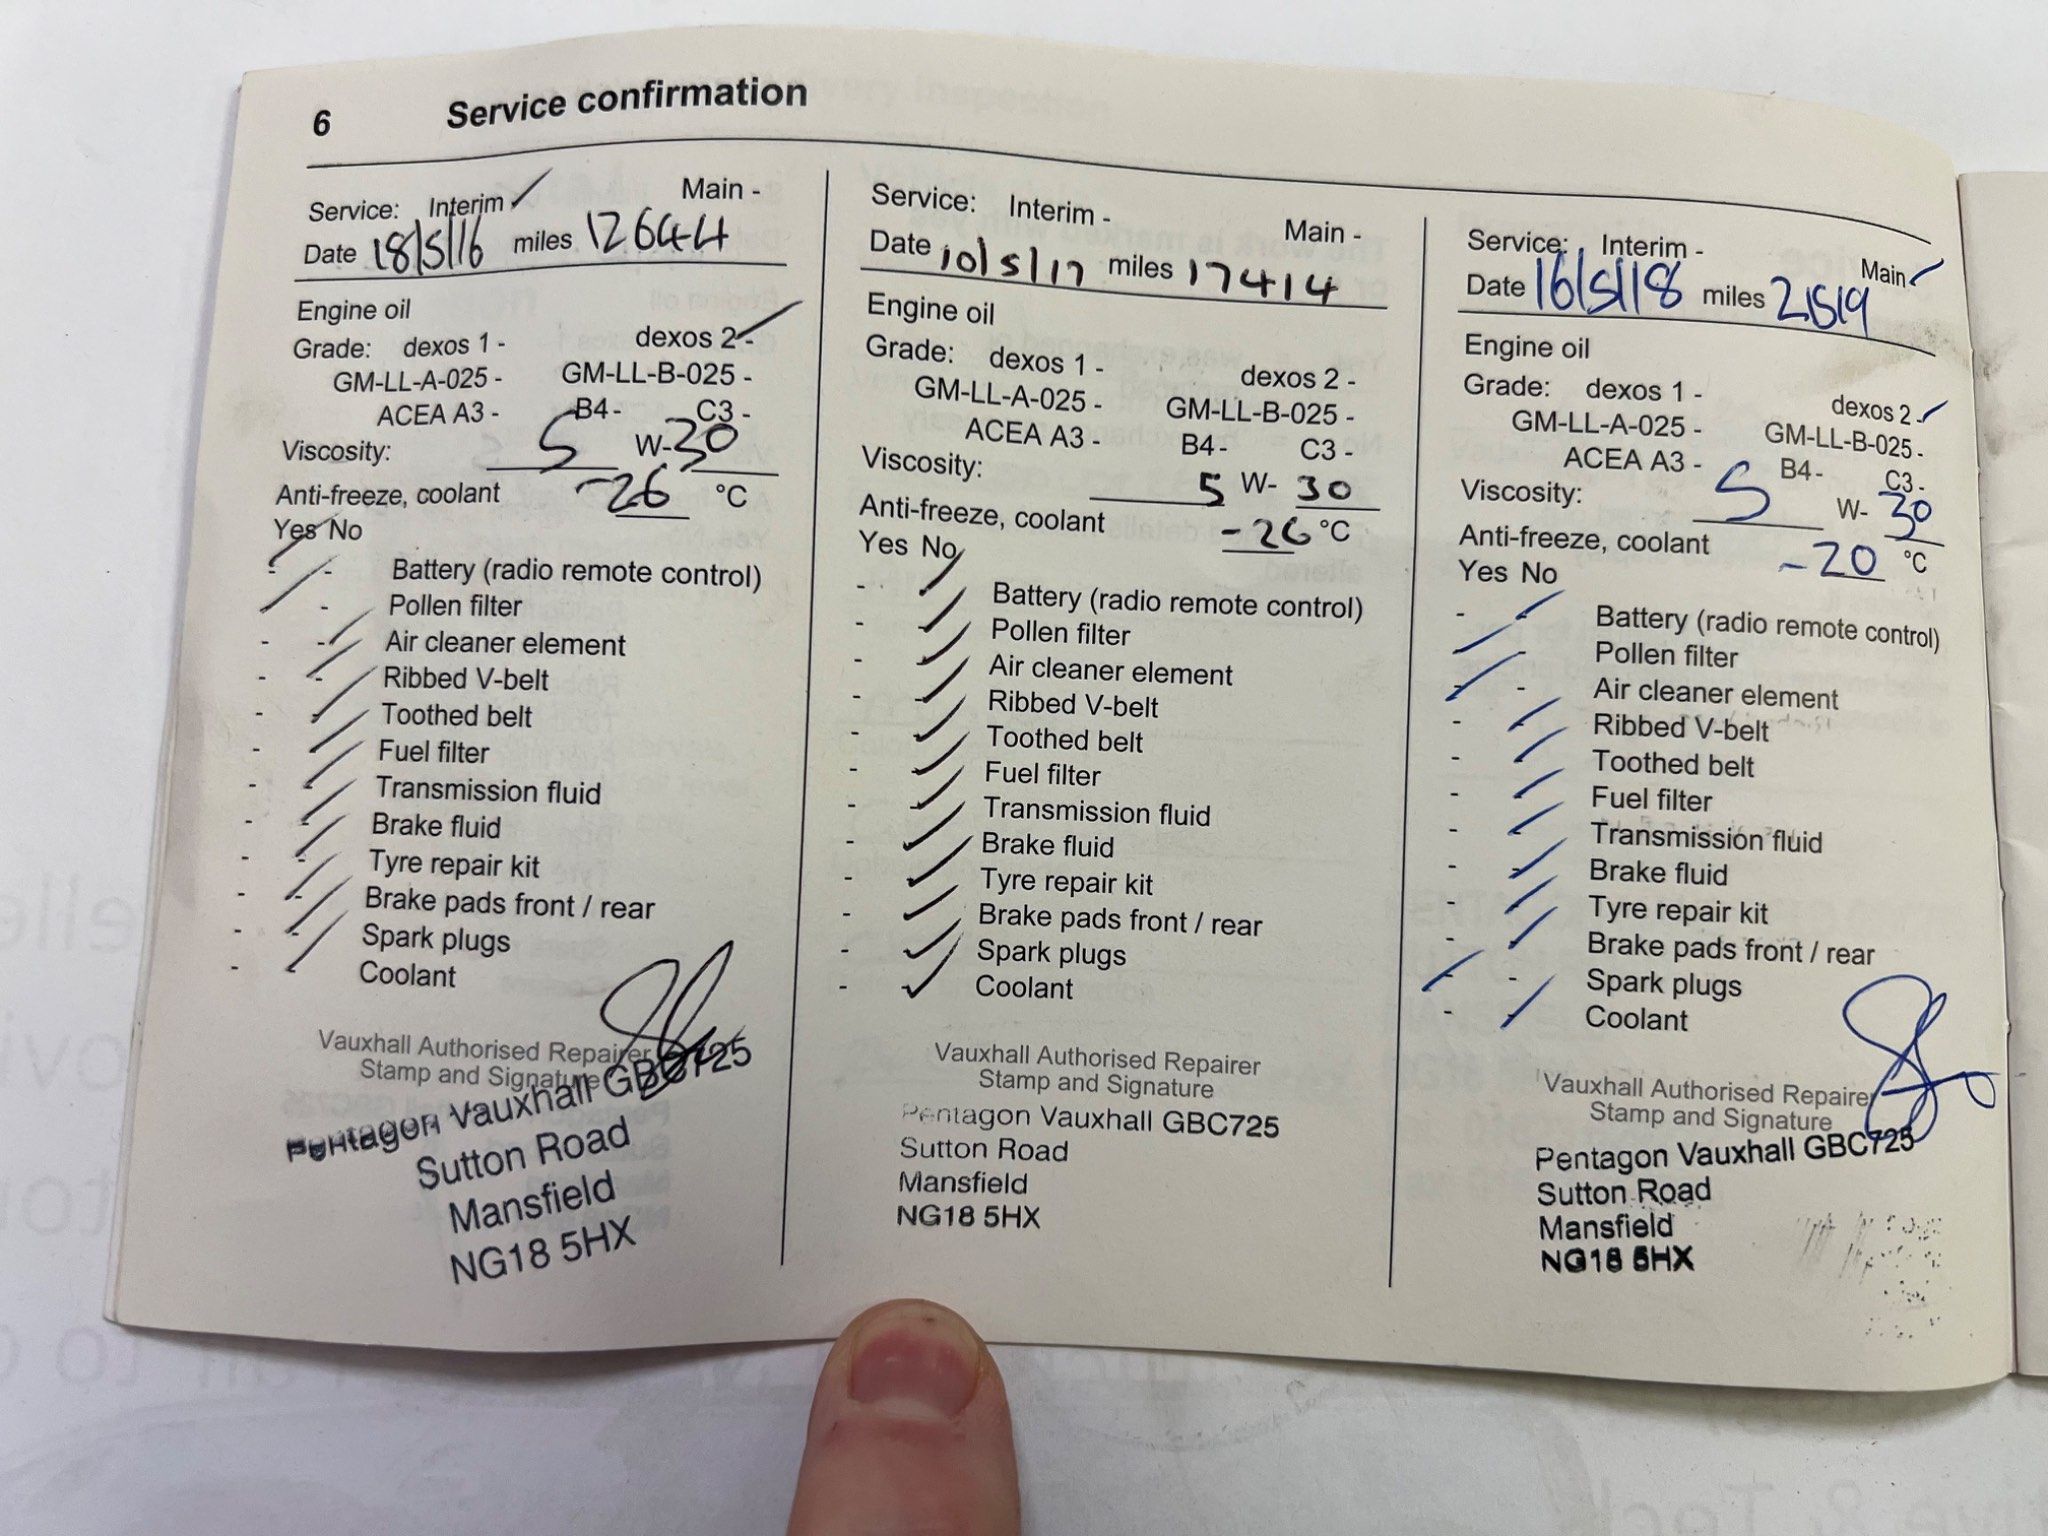 6 Service confirmation
Service: Interim ✓ Main -
Date 18/5/16 miles 12644
Engine oil
Grade: dexos 1 - dexos 2 - ✓
GM-LL-A-025 - GM-LL-B-025 -
ACEA A3 - B4 - C3 -
Viscosity: 5 W- 30
Anti-freeze, coolant -26 °C
Yes No
Battery (radio remote control)
Pollen filter
Air cleaner element
Ribbed V-belt
Toothed belt
Fuel filter
Transmission fluid
Brake fluid
Tyre repair kit
Brake pads front / rear
Spark plugs
Coolant
Vauxhall Authorised Repairer
Stamp and Signature
Pentagon Vauxhall GBC725
Sutton Road
Mansfield
NG18 5HX
Service: Interim - Main -
Date 10/5/17 miles 17414
Engine oil
Grade: dexos 1 - dexos 2 -
GM-LL-A-025 - GM-LL-B-025 -
ACEA A3 - B4 - C3 -
Viscosity: 5 W- 30
Anti-freeze, coolant -26 °C
Yes No
Battery (radio remote control)
Pollen filter
Air cleaner element
Ribbed V-belt
Toothed belt
Fuel filter
Transmission fluid
Brake fluid
Tyre repair kit
Brake pads front / rear
Spark plugs
Coolant
Vauxhall Authorised Repairer
Stamp and Signature
Pentagon Vauxhall GBC725
Sutton Road
Mansfield
NG18 5HX
Service: Interim - Main ✓
Date 16/5/18 miles
Engine oil
Grade: dexos 1 - dexos 2 - ✓
GM-LL-A-025 - GM-LL-B-025 -
ACEA A3 - B4 - C3 -
Viscosity: 5 W- 30
Anti-freeze, coolant -20 °C
Yes No
Battery (radio remote control)
Pollen filter
Air cleaner element
Ribbed V-belt
Toothed belt
Fuel filter
Transmission fluid
Brake fluid
Tyre repair kit
Brake pads front / rear
Spark plugs
Coolant
Vauxhall Authorised Repairer
Stamp and Signature
Pentagon Vauxhall GBC725
Sutton Road
Mansfield
NG18 5HX